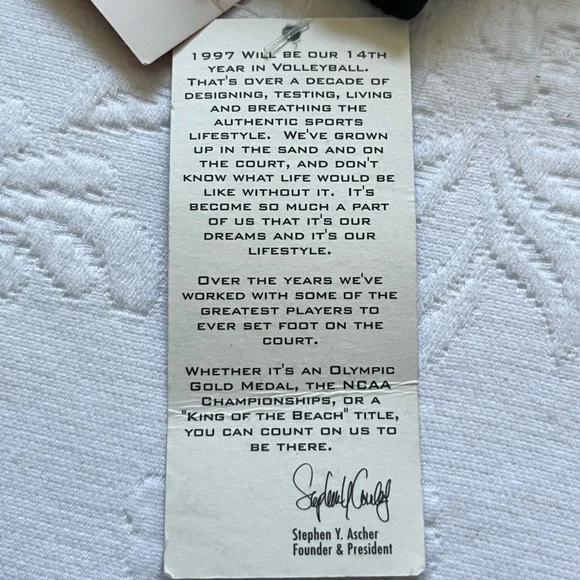 1997 WILL BE OUR 14TH
YEAR IN VOLLEYBALL.
THAT'S OVER A DECADE OF
DESIGNING, TESTING, LIVING
AND BREATHING THE
AUTHENTIC SPORTS
LIFESTYLE. WE'VE GROWN
UP IN THE SAND AND ON
THE COURT, AND DON'T
KNOW WHAT LIFE WOULD BE
LIKE WITHOUT IT. IT'S
BECOME SO MUCH A PART
OF US THAT IT'S OUR
DREAMS AND IT'S OUR
LIFESTYLE.
OVER THE YEARS WE'VE
WORKED WITH SOME OF THE
GREATEST PLAYERS TO
EVER SET FOOT ON THE
COURT.
WHETHER IT'S AN OLYMPIC
GOLD MEDAL, THE NCAA
CHAMPIONSHIPS, OR A
"KING OF THE BEACH" TITLE,
YOU CAN COUNT ON US TO
BE THERE.
Stephen Y. Ascher
Founder & President